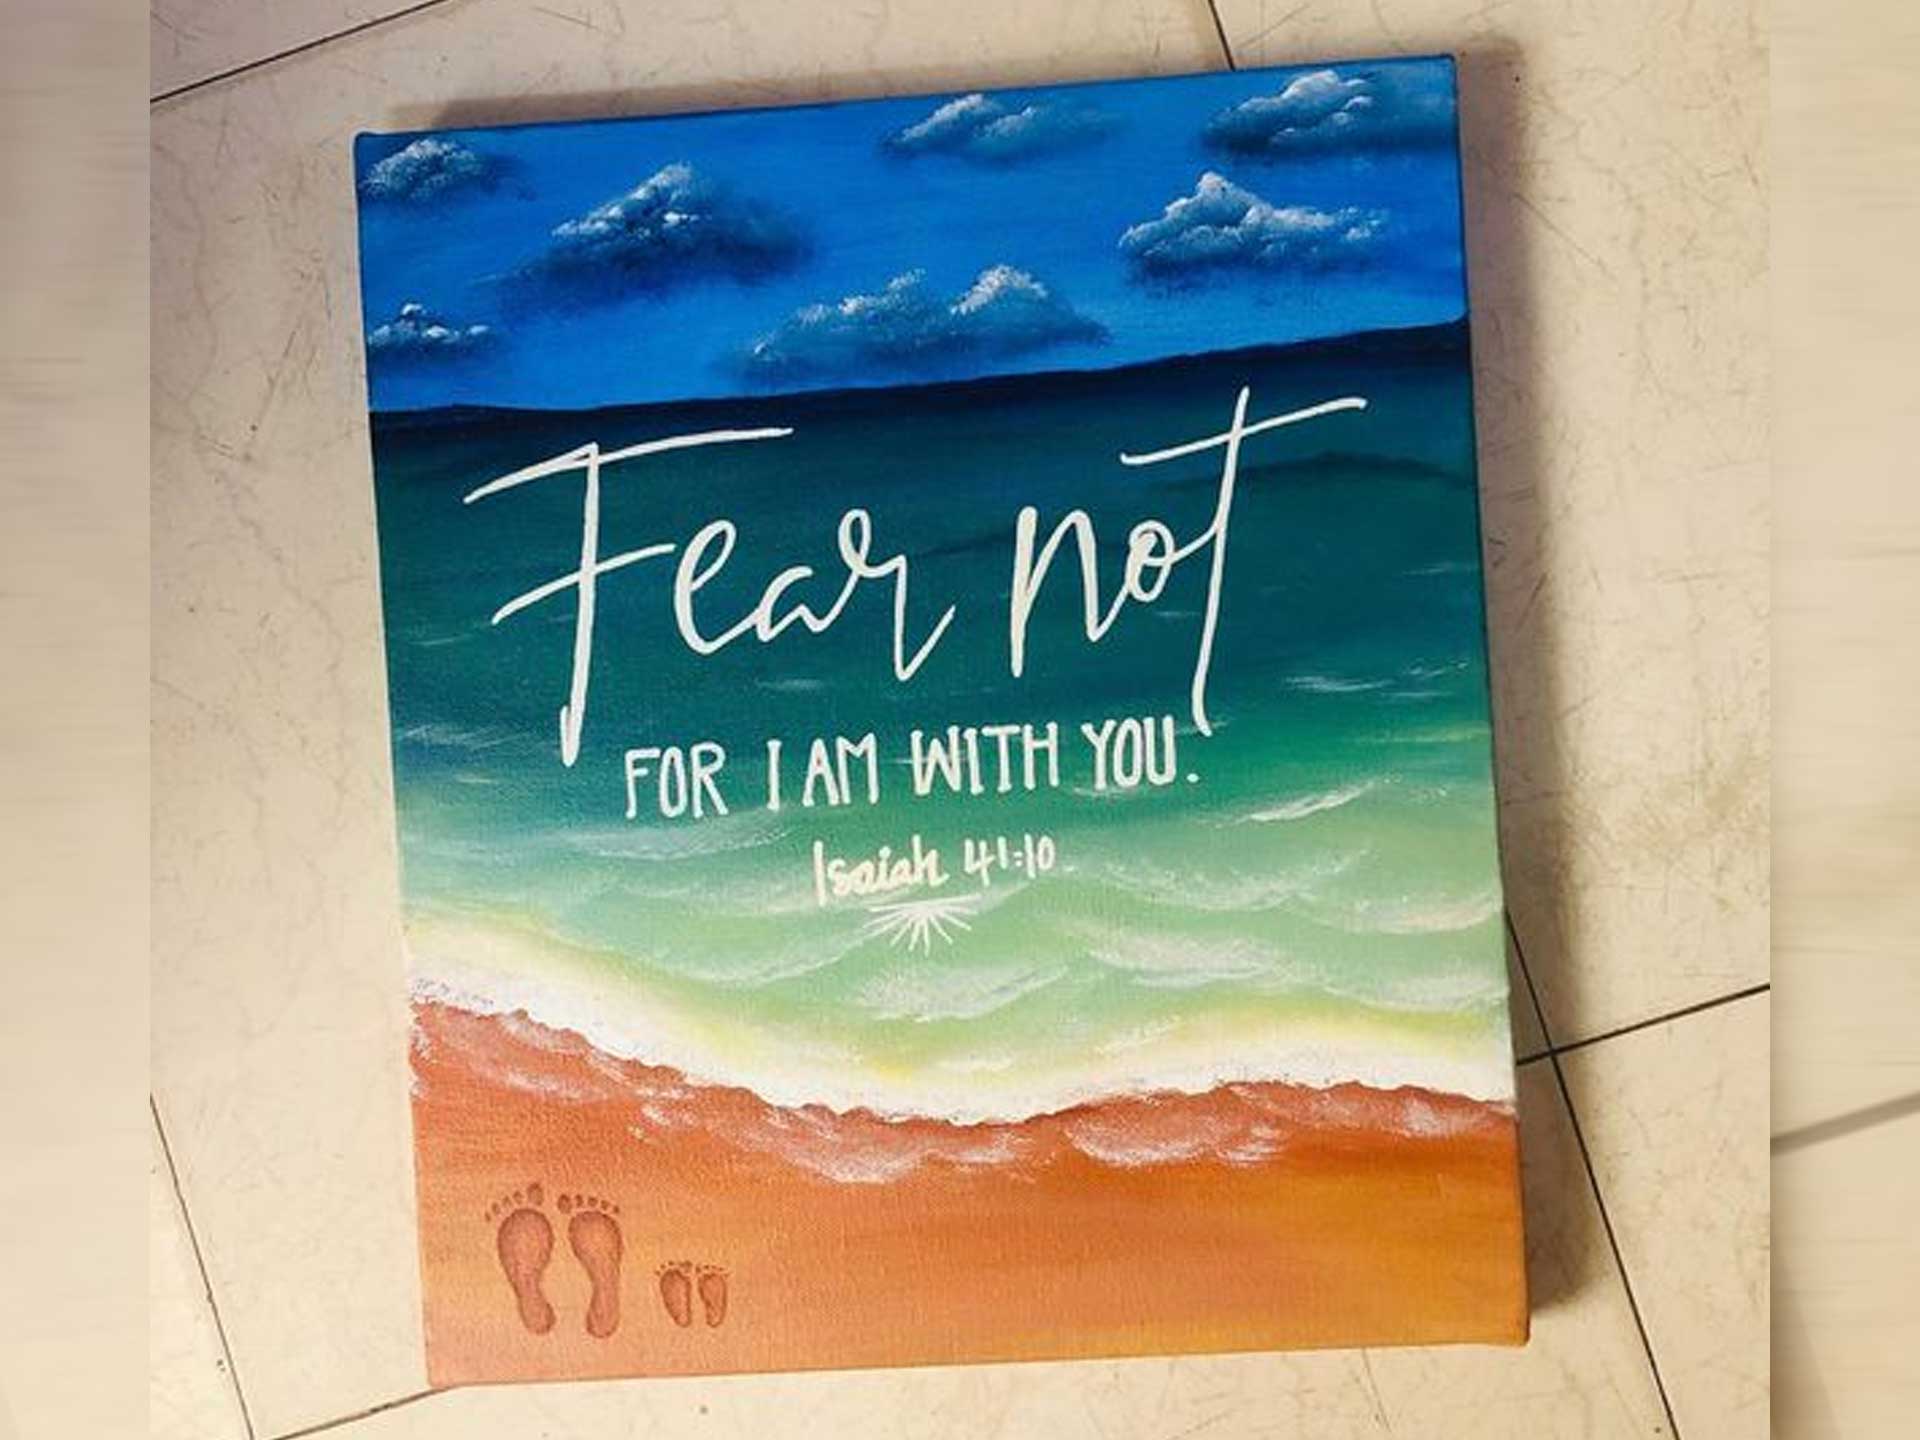 Fear not
FOR I AM WITH YOU.
Isaiah 41:10